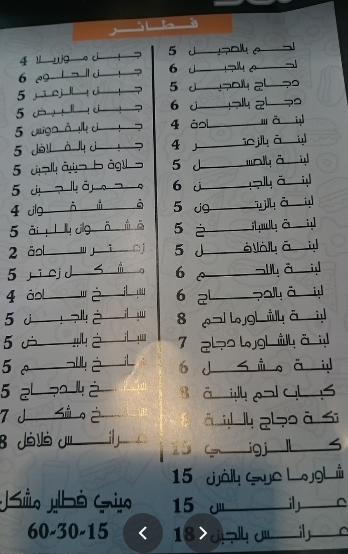 فطائر
لحم بعجين 5
لحم بالجبن 6
دجاج بالعجين 5
دجاج بالجبن 6
لبنة سادة 4
لبنة بالزعتر 4
لبنة بالعسل 5
لبنة بالجبن 6
لبنة بالزيتون 5
لبنة بالسبانخ 5
لبنة بالفلافل 5
لبنة باللحم 6
لبنة بالدجاج 6
لبنة بالشاورما لحم 8
لبنة بالشاورما دجاج 7
لبنة مشكل 6
كباب لحم بالجبنة 8
تكة دجاج باللبنة 8
الكلزوني 15
شاورما عربي بالفرن 15
عرايس 15
عرايس بالجبن 18
جبن موزريلا 4
جبن الحلوم 6
جبن بالزعتر 5
جبن بالبيض 5
جبن بالفلافل 5
حلاوة طحينية بالجبن 5
محمرة بالجبن 5
قشقوان 4
قشقوان باللبنة 5
زعتر سادة 2
مشكل زعتر 5
سبانخ سادة 4
سبانخ بالجبن 5
سبانخ بالبيض 5
سبانخ باللحم 5
سبانخ بالدجاج 5
سبانخ مشكل 7
عرائس فلافل 8
ميني فطاير مشكل
15-30-60